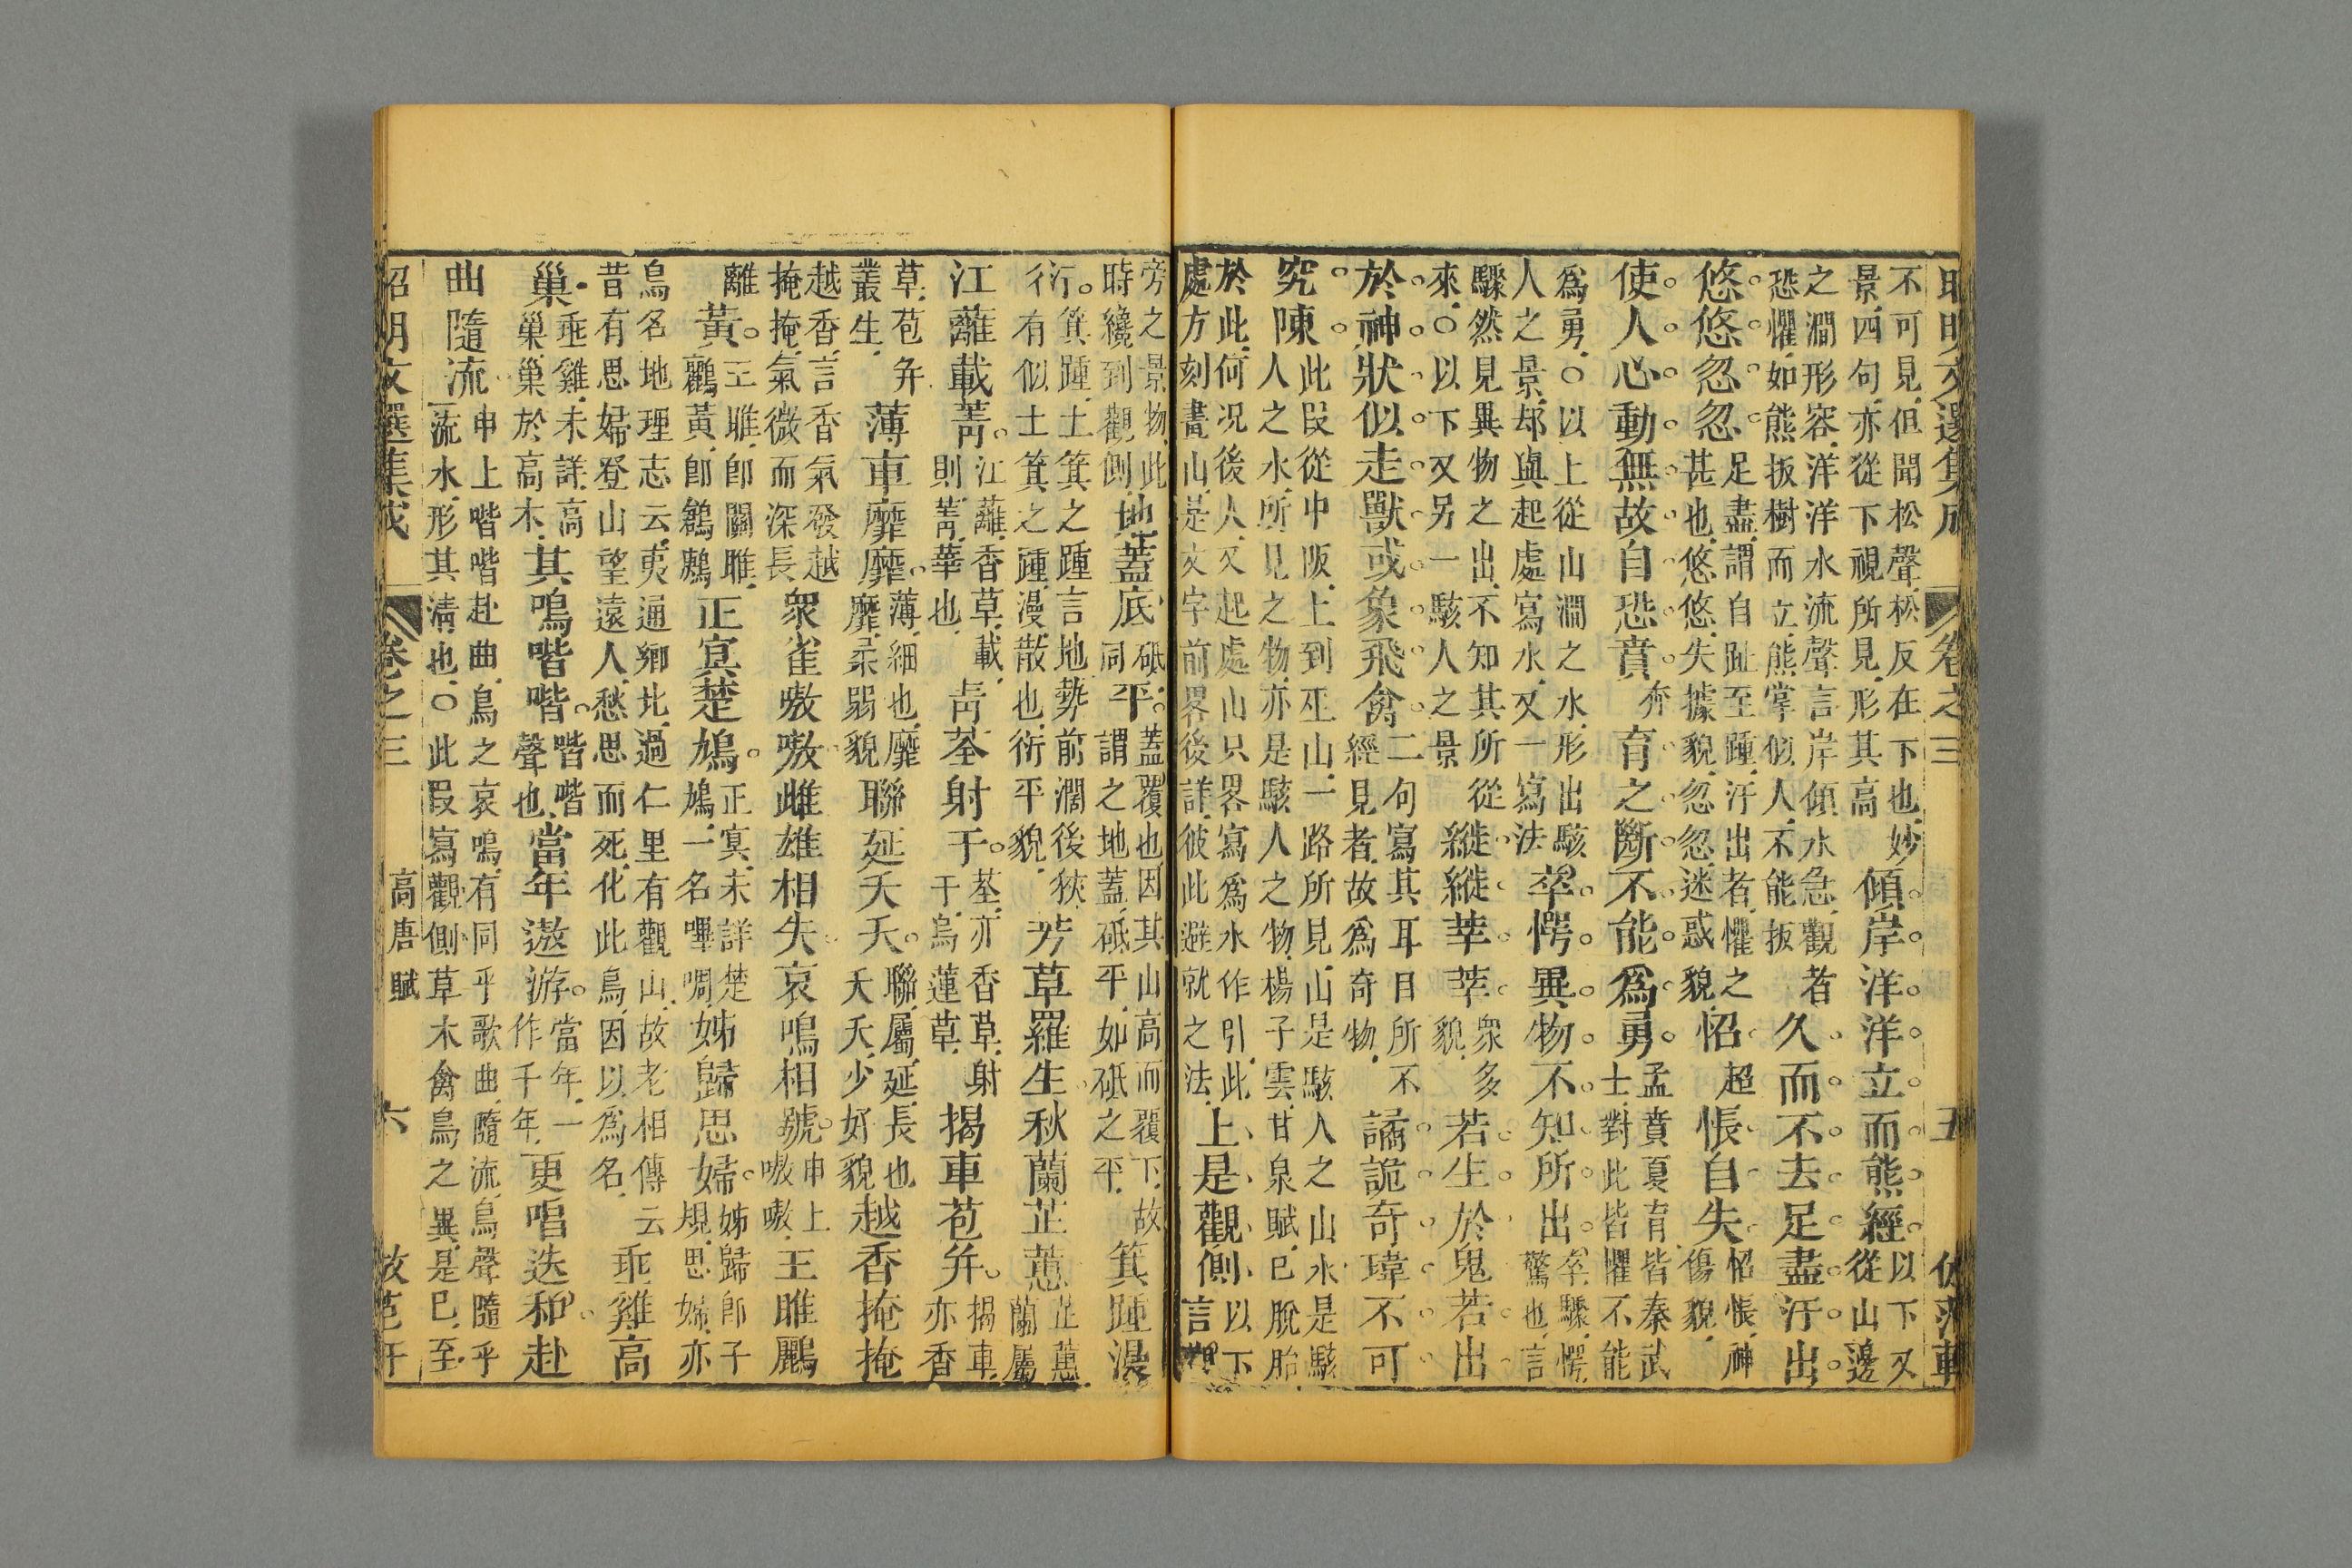 昭明文選集成　卷之三　五　仿范軒
不可見但聞松聲松反在下也妙
景四句亦從下視所見形其高
傾岸洋洋立而熊經
以下又
從山邊
之澗形容洋洋水流聲言岸傾水急觀者
恐懼如熊扳樹而立熊掌似人不能扳
久而不去足盡汗出
悠悠忽忽
足盡謂自趾至踵汗出者懼之
甚也悠悠失據貌忽忽迷惑貌
怊超悵自失
怊悵神
傷貌
使人心動無故自恐賁奔育之斷不能爲勇
孟賁夏育皆秦武
士對此皆懼不能
爲勇○以上從山澗之水形出駭
人之景却與起處寫水又一寫法
卒愕異物不知所出
卒驟愕
驚也言
驟然見異物之出不知其所從
來○以下又另一駭人之景
縱縱莘莘
衆多
貌
若生於鬼若出
於神狀似走獸或象飛禽
二句寫其耳目所不
經見者故爲奇物
譎詭奇瑋不可
究陳
此段從中阪上到巫山一路所見山是駭人之山水是駭
人之水所見之物亦是駭人之物楊子雲甘泉賦已脫胎
於此何况後人又起處山只畧寫爲水作引此
處方刻畫山是文字前畧後詳彼此避就之法
上是觀側
以下
言
旁之景物此
時纔到觀側
地蓋底砥同平
蓋覆也因其山高而覆下故
謂之地蓋砥平如砥之平
箕踵漫
衍
箕踵土箕之踵言地勢前濶後狹
行有似土箕之踵漫散也衍平貌
芳草羅生秋蘭芷蕙
芷蕙
蘭屬
江蘺載菁
江蘺香草載
則菁華也
青荃射干
荃亦香草射
干烏蓮草
揭車苞并
揭車
亦香
草苞并
叢生
薄車靡靡
薄細也靡
靡柔弱貌
聯延夭夭
聯屬延長也
夭夭少好貌
越香掩掩
越香言香氣發越
掩掩氣微而深長
衆雀嗷嗷雌雄相失哀鳴相號
申上
嗷嗷
王雎鸝
離黃
王雎即關雎
鸝黃即鶬鶊
正冥楚鳩
正冥未詳楚
鳩一名嗶啁
姊歸思婦
姊歸即子
規思婦亦
鳥名地理志云夷通鄉北過仁里有觀山故老相傳云
昔有思婦登山望遠人愁思而死化此鳥因以爲名
垂雞高
巢
垂雞未詳高
巢巢於高木
其鳴喈喈
喈喈
聲也
當年遨游
當年一
作千年
更唱迭和赴
曲隨流
申上喈喈赴曲鳥之哀鳴有同乎歌曲隨流鳥聲隨乎
流水形其清也○此段寫觀側草木禽鳥之異是已至
昭明文選集成　卷之三　高唐賦　六